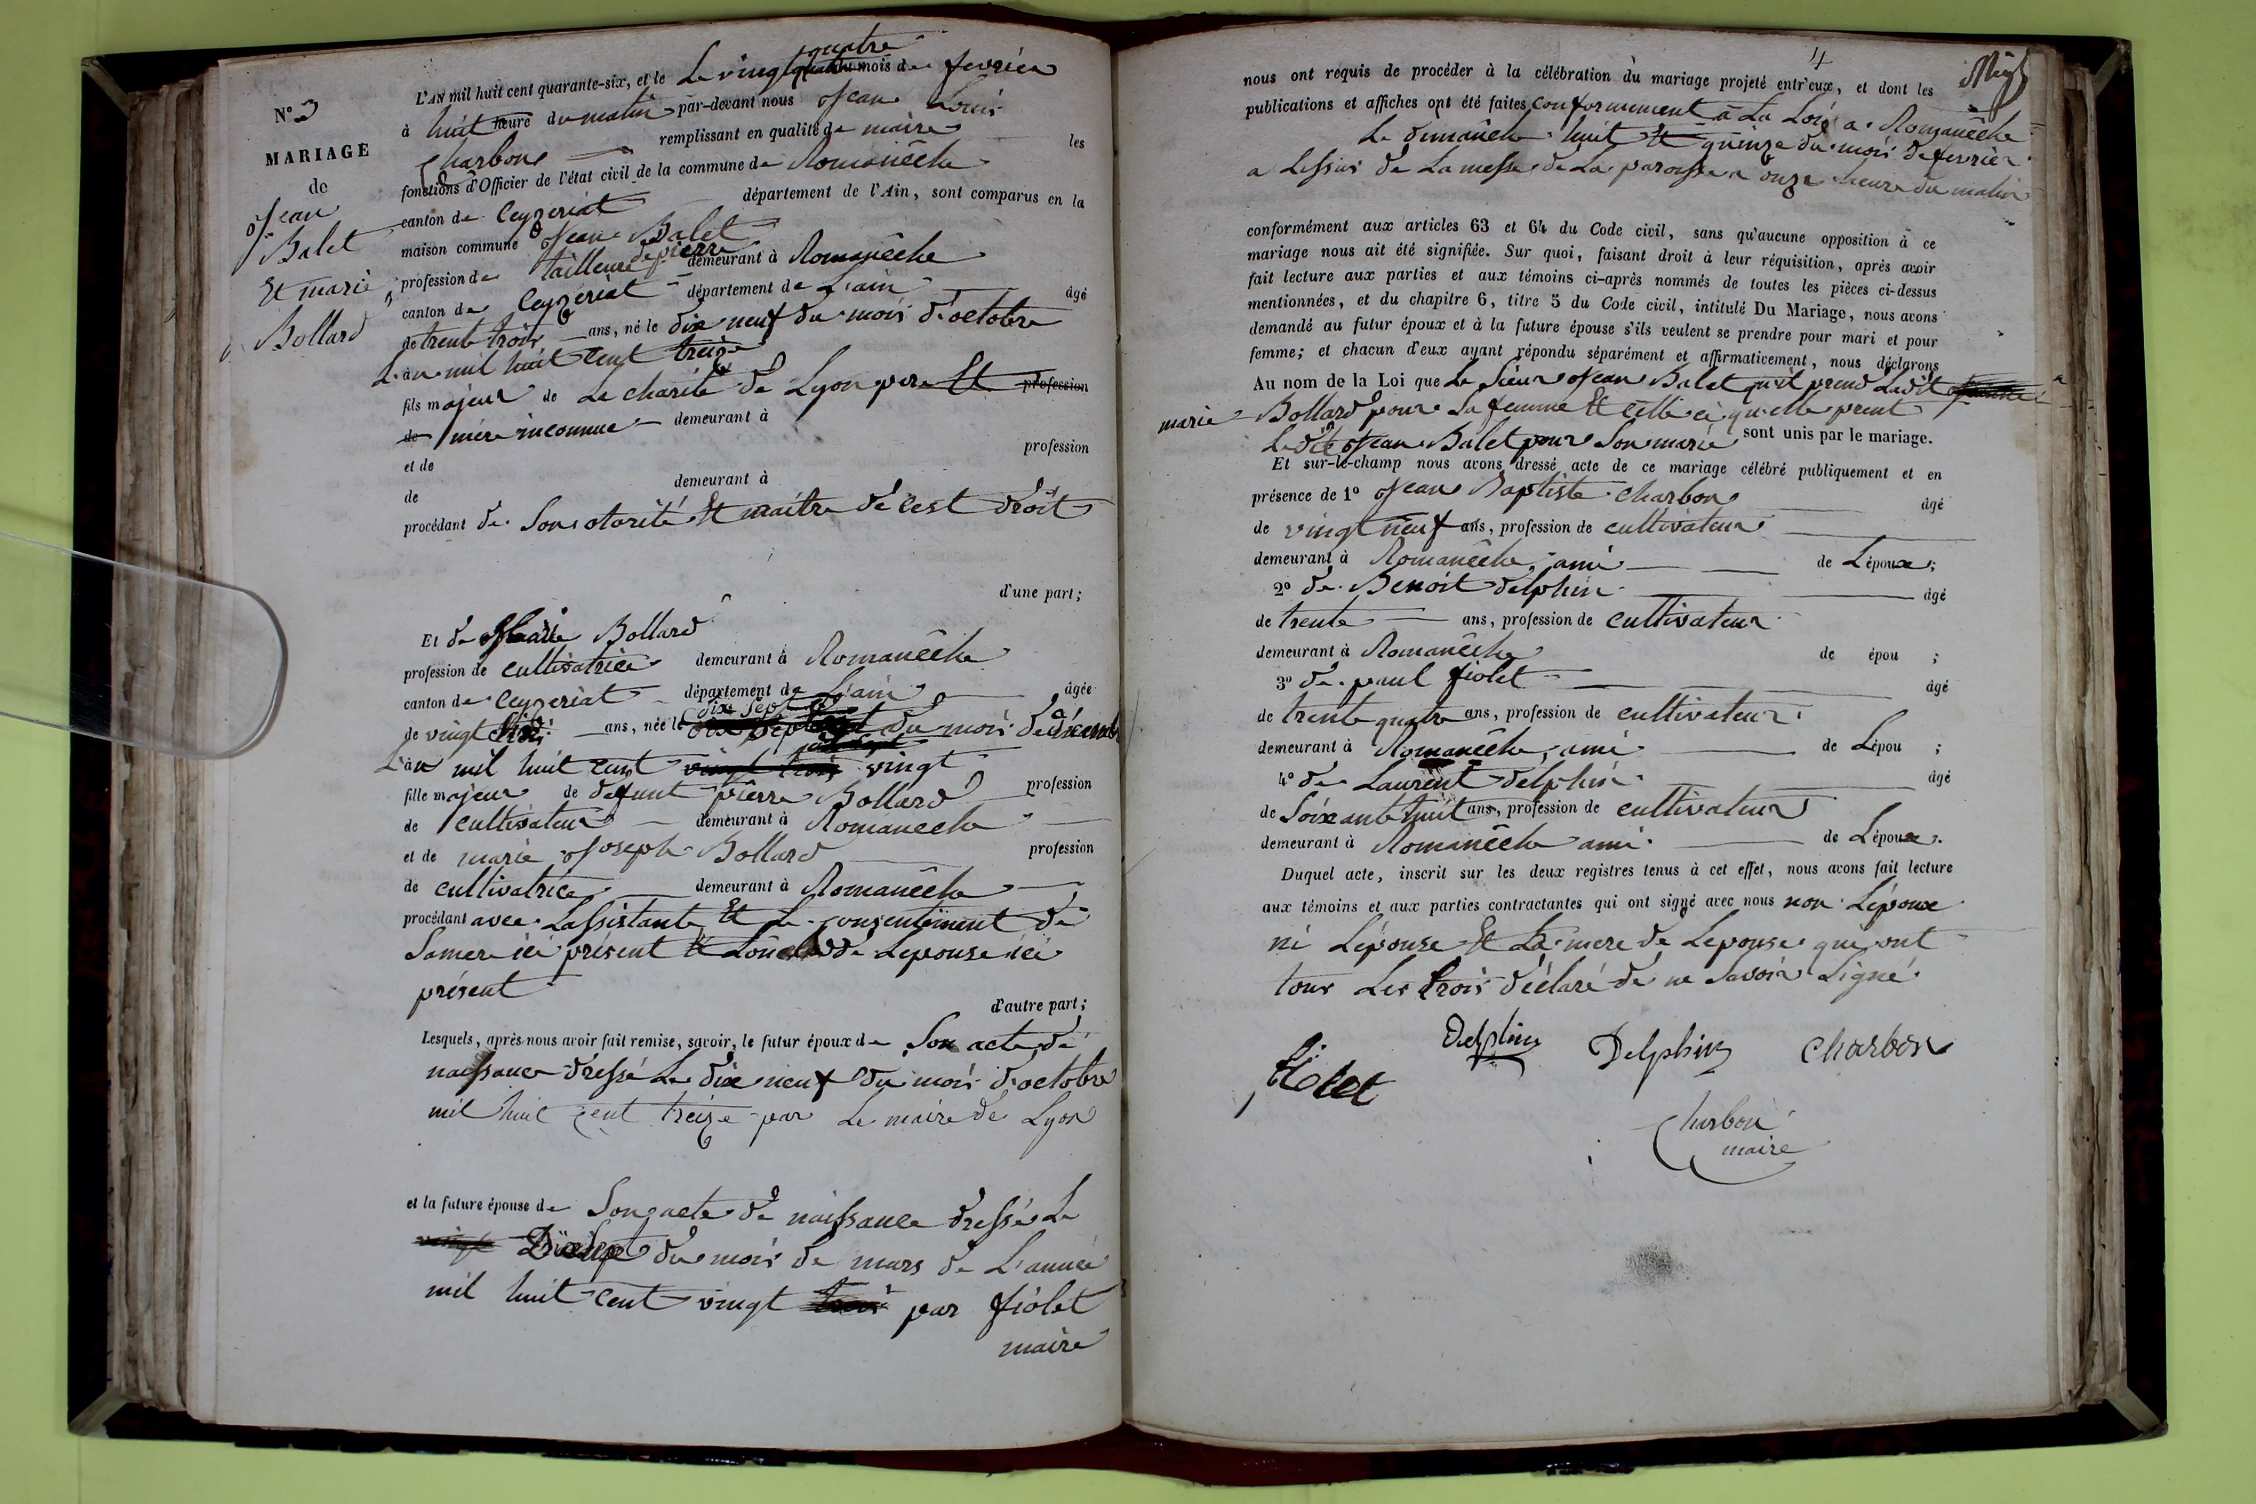 N° 3
MARIAGE
de
Jean
Balet
Et marie
Bollard
L'AN mil huit cent quarante-six, et le Le vingt quatre du mois de fevrier
à huit heure du matin par-devant nous Jean Louis
Charbon remplissant en qualité de maire les
fonctions d'Officier de l'état civil de la commune de Romanêche
canton de Ceyzeriat département de l'Ain, sont comparus en la
maison commune Jean Balet
profession de tailleur de pierre demeurant à Romanêche
canton de Ceyzeriat département de L'ain âgé
de trente trois ans, né le dix neuf du mois d'octobre
L'an mil huit cent treize
fils majeur de La charité de Lyon pere Et profession
de mère inconnue demeurant à
et de profession
de demeurant à
procédant de Son otorité Et maitre de cest droit
d'une part;
Et de Marie Bollard
profession de cultivatrice demeurant à Romanêche
canton de Ceyzeriat département de L'ain âgée
de vingt ans, née le dix sept du mois de
L'an mil huit cent vingt trois vingt
fille majeur de defunt pierre Bollard profession
de cultivateur demeurant à Romaneche
et de marie Joseph Bollard profession
de cultivatrice demeurant à Romanêche
procédant avec Lassistante Et Le consentement de
Samere ici présent Et Loncle de Lepouse ici
présent
d'autre part;
Lesquels, après nous avoir fait remise, savoir, le futur époux de Son acte de
naissance dressé Le dix neuf du mois d'octobre
mil huit cent treize par Le maire de Lyon
et la future épouse de Son acte de naissance dressé Le
vingt Dixsept du mois de mars de L'année
mil huit cent vingt trois par fiolet
maire
4
nous ont requis de procéder à la célébration du mariage projeté entr'eux, et dont les
publications et affiches ont été faites conformement à La Loi a Romanêche
Le dimanche huit Et quinze du mois de fevrier
a Lessus de La messe de La paroisse a onze heure du matin
conformément aux articles 63 et 64 du Code civil, sans qu'aucune opposition à ce
mariage nous ait été signifiée. Sur quoi, faisant droit à leur réquisition, après avoir
fait lecture aux parties et aux témoins ci-après nommés de toutes les pièces ci-dessus
mentionnées, et du chapitre 6, titre 5 du Code civil, intitulé Du Mariage, nous avons
demandé au futur époux et à la future épouse s'ils veulent se prendre pour mari et pour
femme; et chacun d'eux ayant répondu séparément et affirmativement, nous déclarons
Au nom de la Loi que Le Sieur Jean Balet qu'il prend Ladit
marie Bollard pour Sa femme Et celle ci qu'elle prent
Ledit Jean Balet pour Son marie sont unis par le mariage.
Et sur-le-champ nous avons dressé acte de ce mariage célébré publiquement et en
présence de 1° Jean Baptiste Charbon âgé
de vingt neuf ans, profession de cultivateur
demeurant à Romanêche, ami de Lépoux;
2° de Benoit delphin âgé
de trente ans, profession de cultivateur
demeurant à Romanêche de épou ;
3° de paul fiolet âgé
de trente quatre ans, profession de cultivateur
demeurant à Romanêche, ami de Lépou ;
4° de Laurent delphin âgé
de Soixante huit ans, profession de cultivateur
demeurant à Romanêche ami de Lépoux.
Duquel acte, inscrit sur les deux registres tenus à cet effet, nous avons fait lecture
aux témoins et aux parties contractantes qui ont signé avec nous non Lépoux
ni Lépouse Et La mere de Lepouse qui ont
tous Les trois déclaré de ne Savoir Signé
Delphin Delphin Charbon
fiolet
Charbon
maire